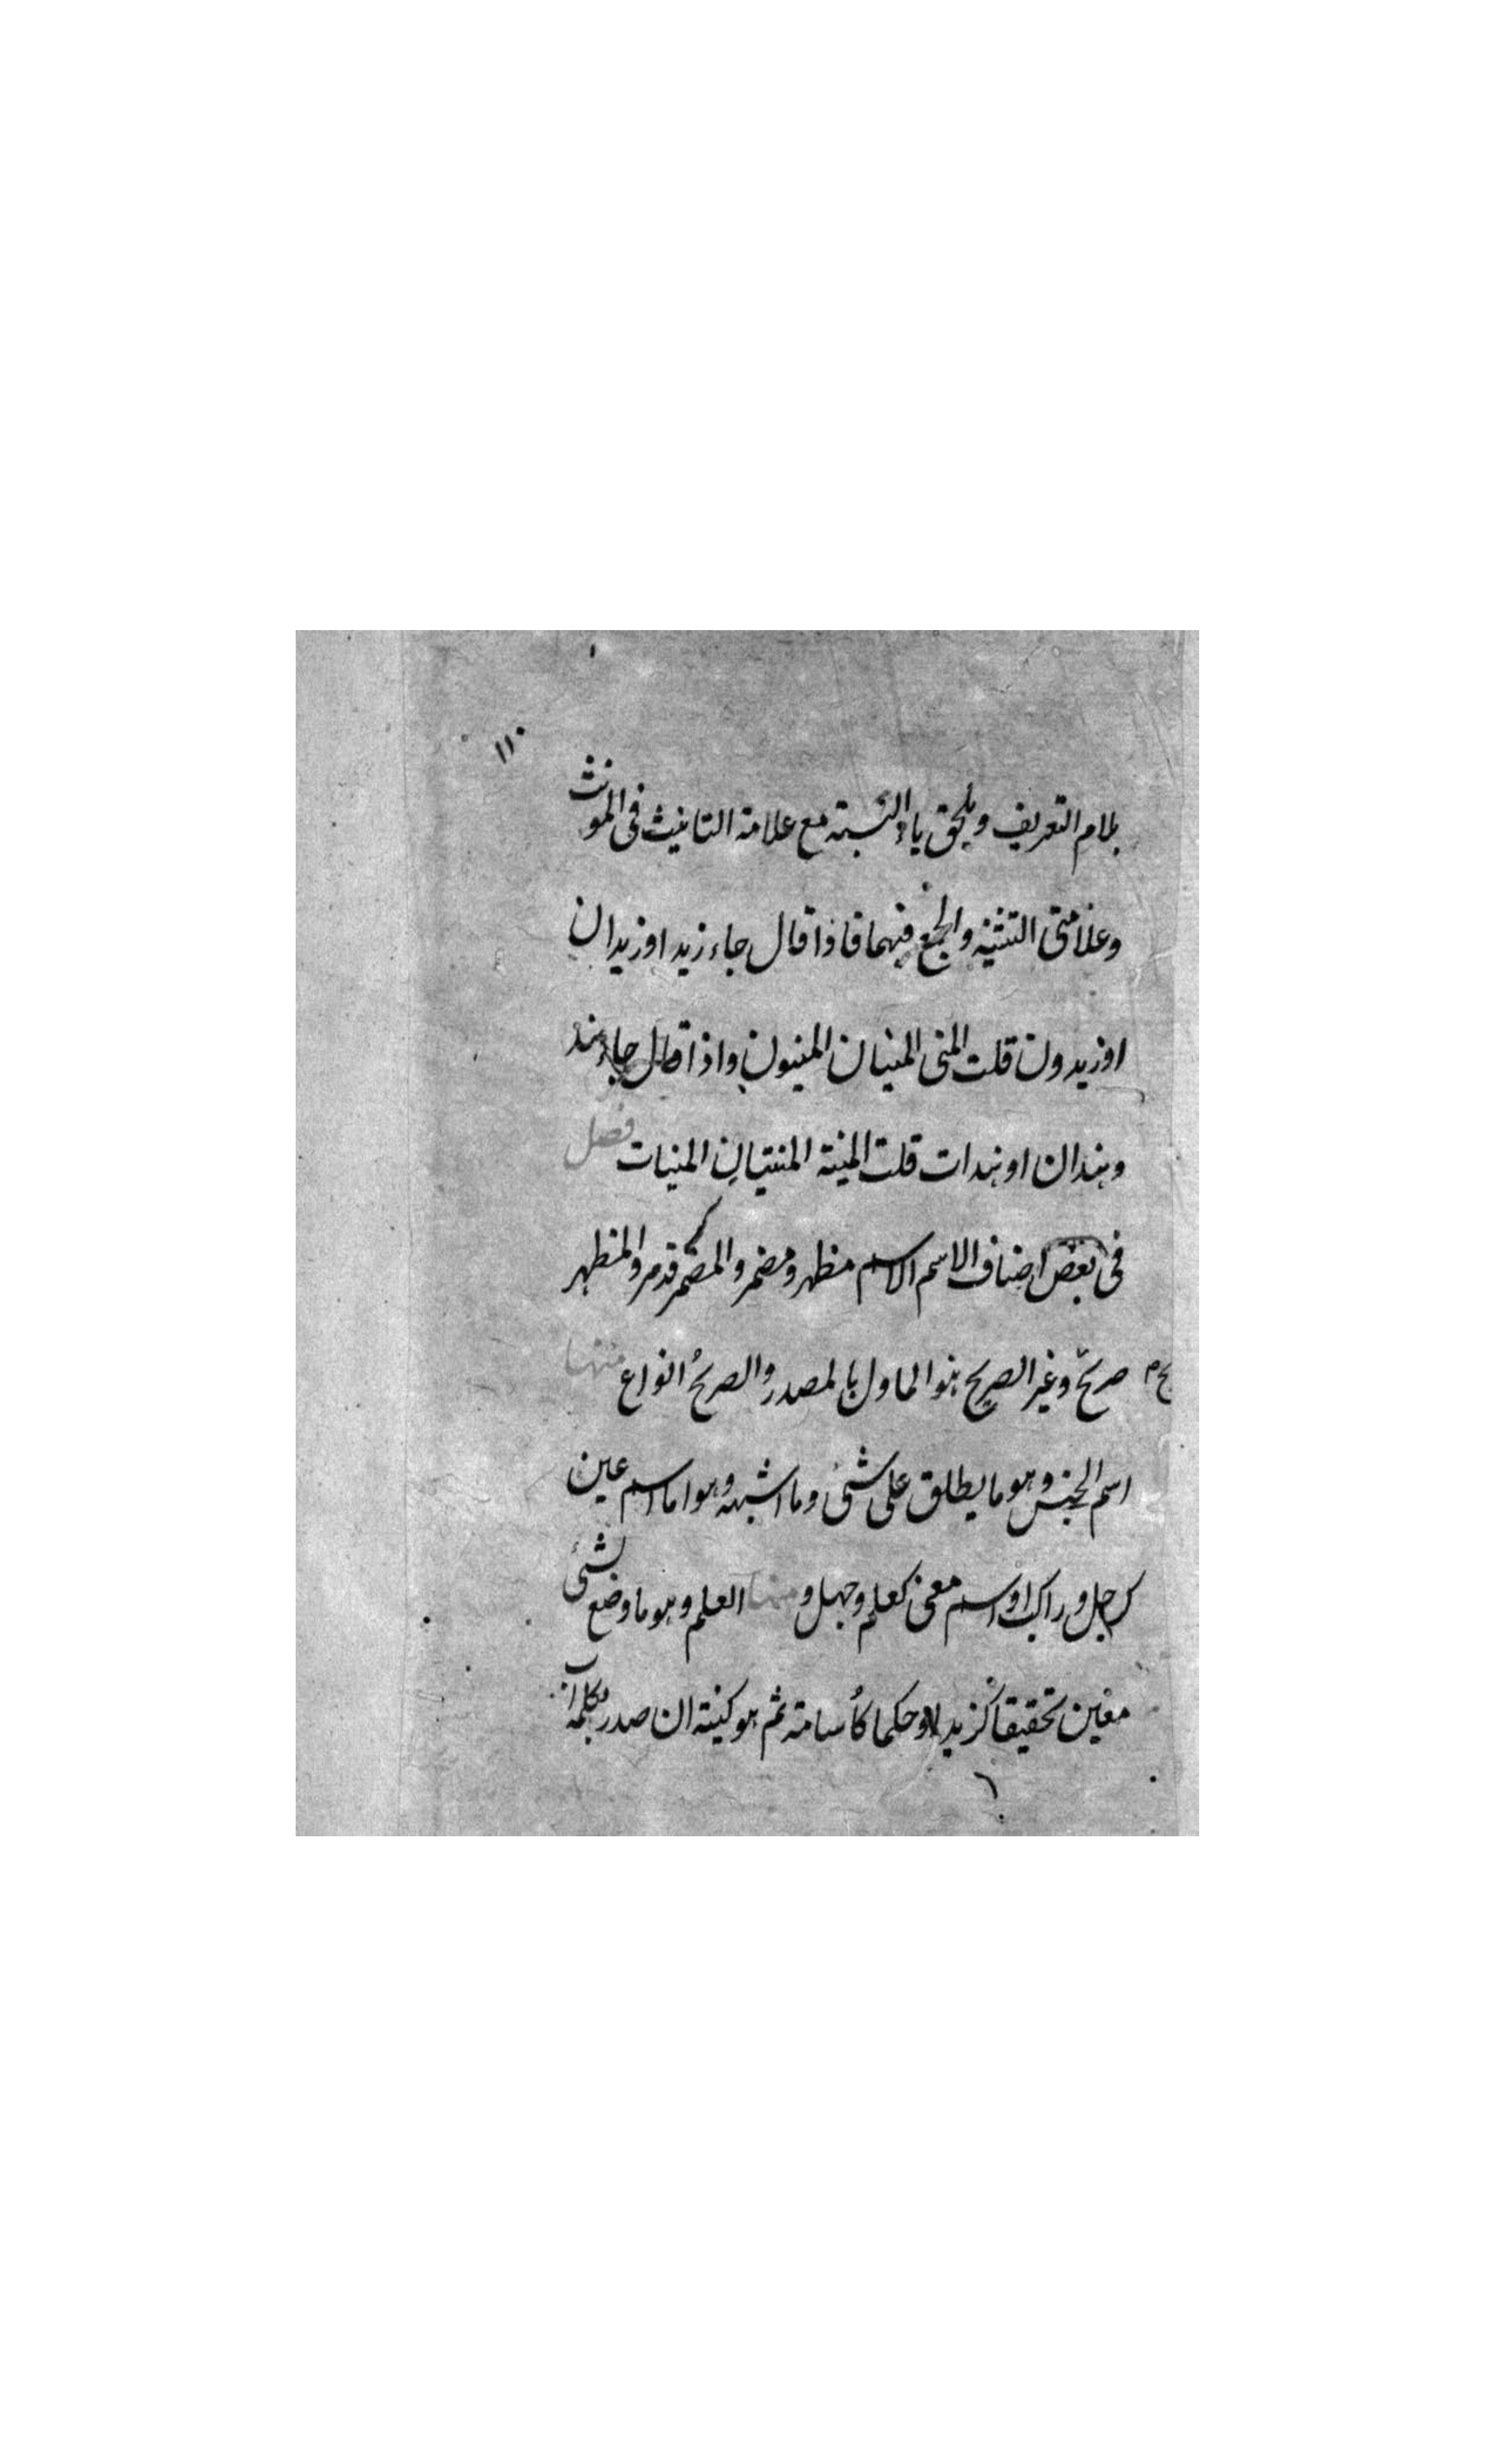 ١١٠
بلام التعريف ويلحق ياء النسبة مع علامة التانيث فى المونث
وعلامتى التثنية والجمع فيهما فاذا قال جاء زيد او زيدان
او زيدون قلت المنى المنيان المنيون واذا قال جاء هند
وهندان او هندات قلت المنية المنيتان المنيات فصل
فى بعض اصناف الاسم الاسم مظهر ومضمر والمضمر قد مر والمظهر
صريح وغير الصريح هو الماول بالمصدر والصريح انواع منها
اسم الجنس وهو ما يطلق على شئ وما اشبهه وهو اما اسم عين
كرجل وراكب او اسم معنى كعلم وجهل و منها العلم وهو ما وضع لشئ
معين تحقيقا كزيد او حكما كأسامة ثم هو كنية ان صدر بكلمة اب